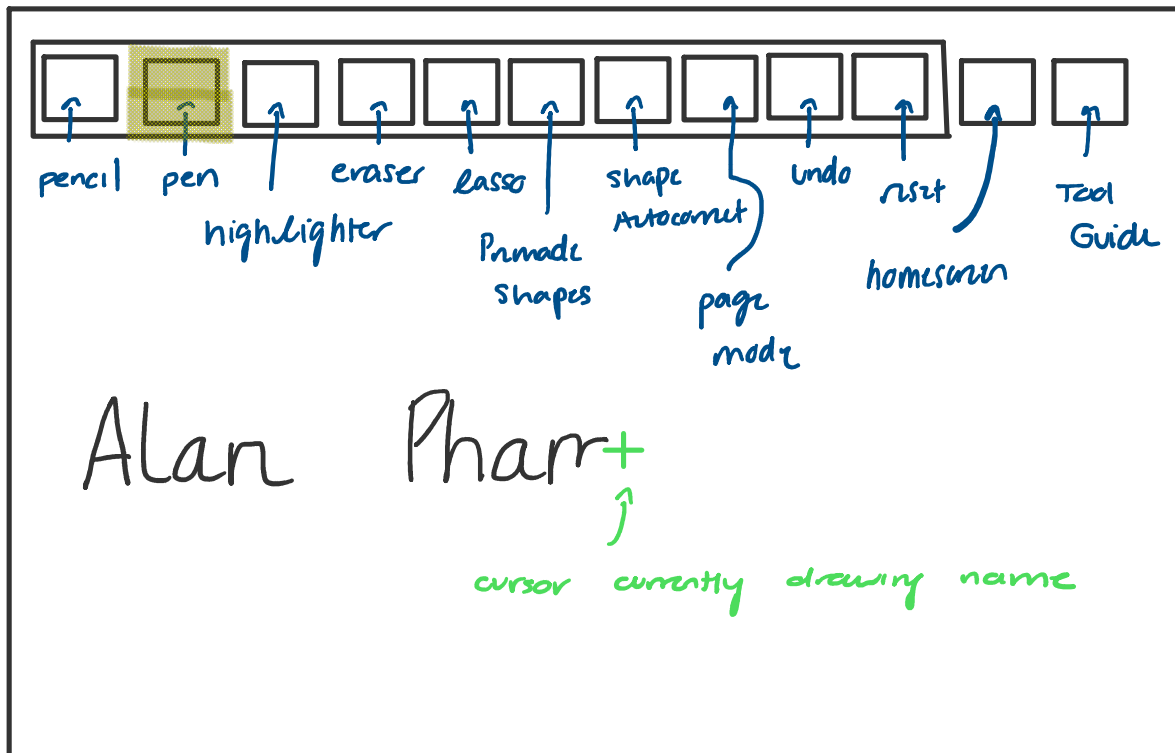 pencil
pen
highlighter
eraser
lasso
Premade
Shapes
shape
Autocorrect
page
mode
undo
reset
homescreen
Tool
Guide
Alan Pham
cursor currently drawing name